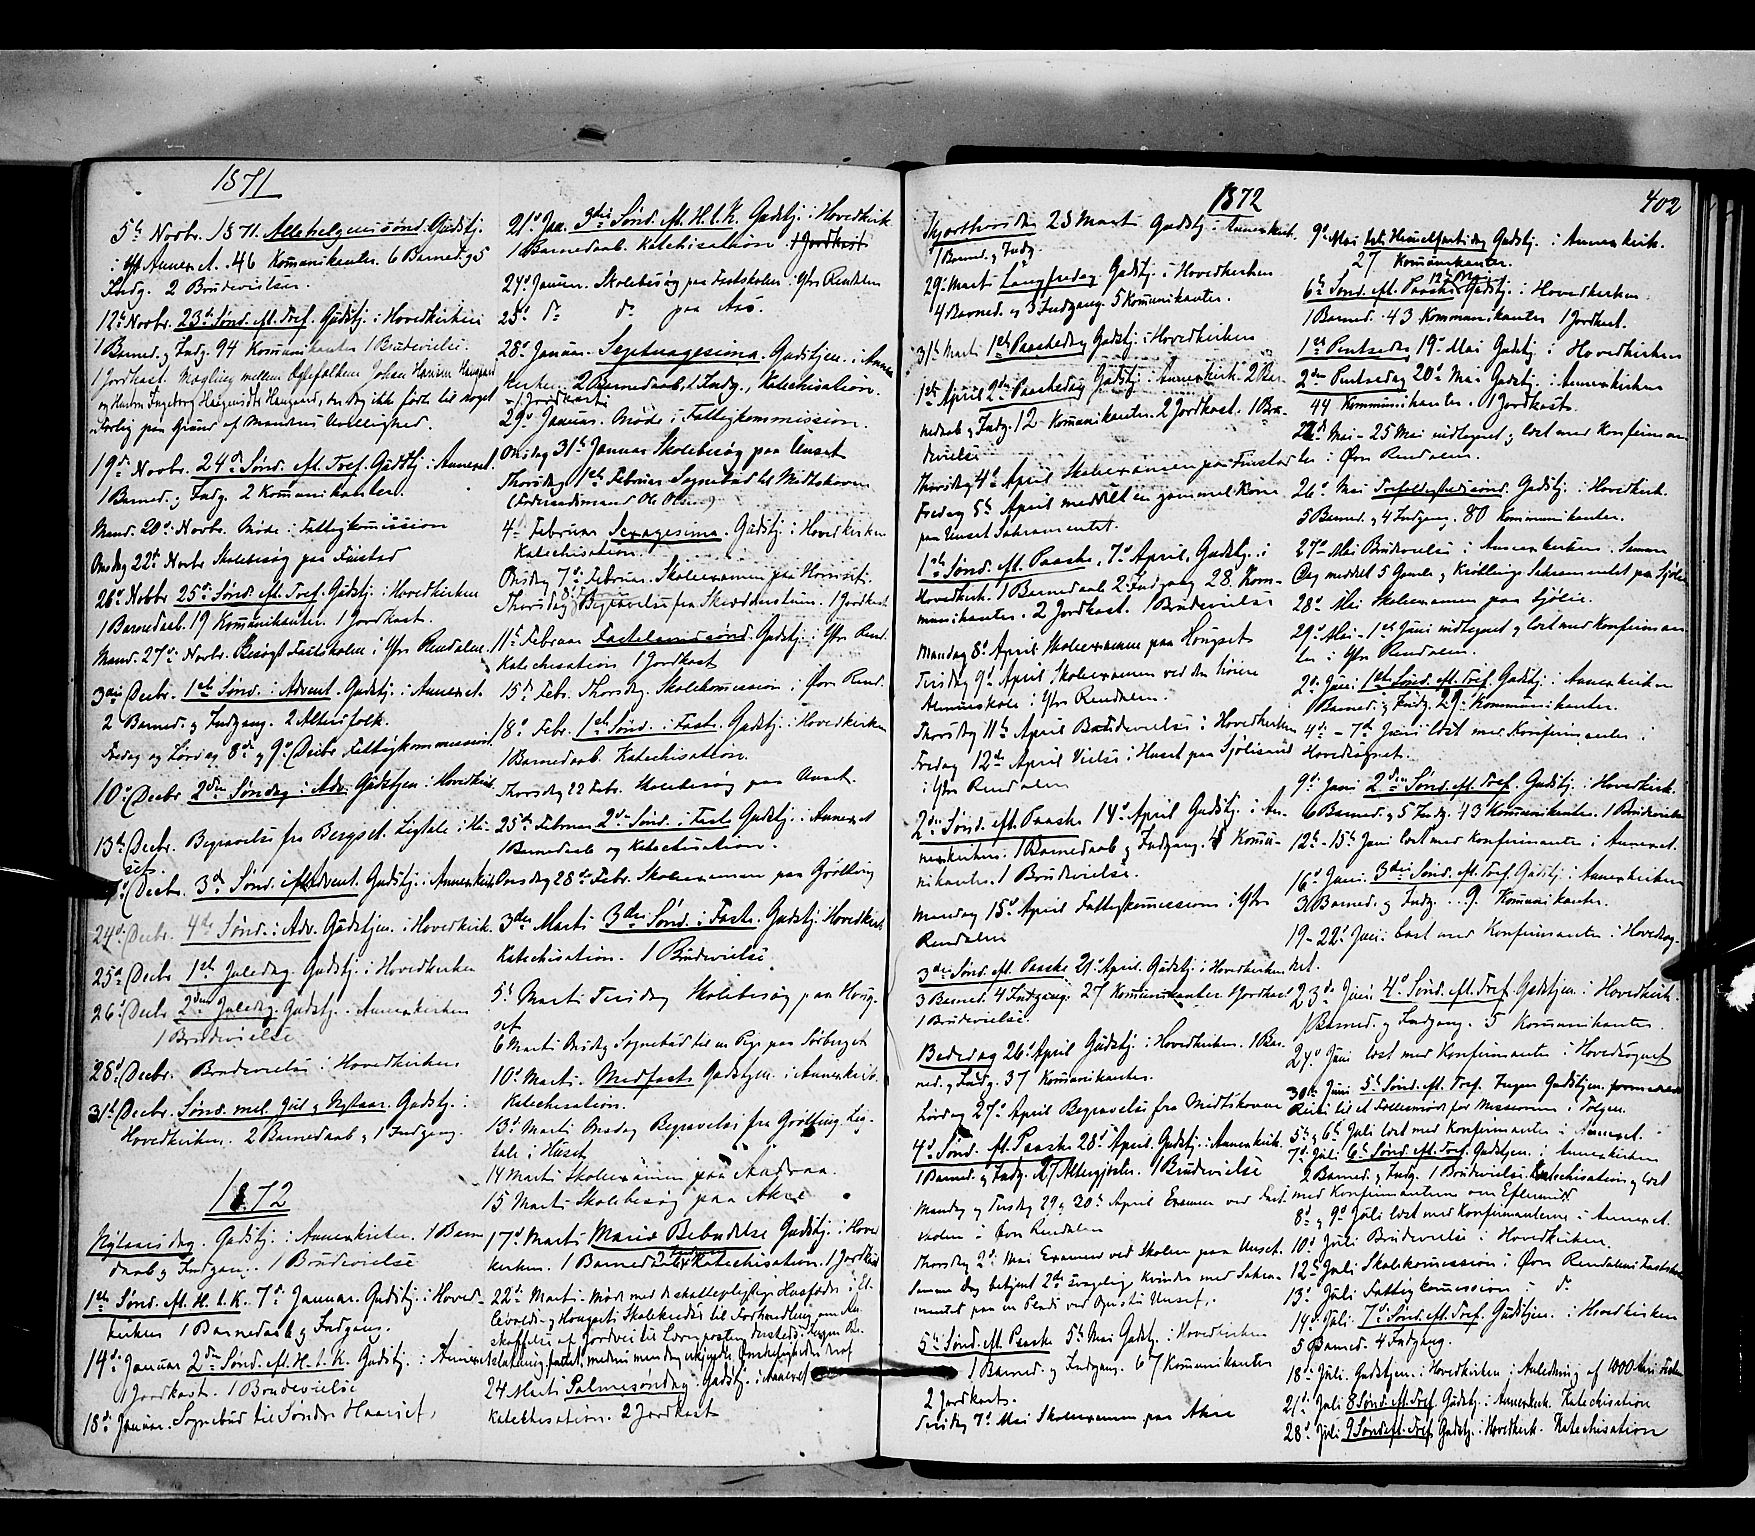 1871
5te Novbr. 1871. Allehelgenssönd. Gudstj.
i Annexet. 46 Kommunikanter. 6 Barned. og 5
Indg. 2 Brudevielser.
12te Novbr. 23de Sönd. eft. Tref. Gudstj. i Hovedkirken
1 Barned. og Indg. 94 Kommunikanter 1 Brudevielse.
1 Jordkast. Mægling mellem Ægtefolkene Johan
og Hustru Ingeborg, der dog ikke förte til noget
paa Grund af Mandens
19de Novbr. 24de Sönd. eft. Tref. Gudstj. i Annexet.
1 Barned. og Indg. 2 Kommunikanter.
Mand. 20de Novbr. Möde i Fattigkommission
Onsdag 22de Novbr. Skolebesög paa Fiustad
26de Novbr. 25de Sönd. eft. Tref. Gudstj. i Hovedkirken
1 Barnedaab. 19 Kommunikanter. 1 Jordkast.
Mand. 27de Novbr. Besögt Fastskolen i Ytre Rendalen
3die Decbr. 1ste Sönd. i Advent. Gudstj. i Annexet.
2 Barned. og Indgang. 2 Altersfolk.
Fredag og Lördag 8de og 9de Decbr. Fattigkommission.
10de Decbr. 2den Söndag i Adv. Gudstjen. i Hovedkirk.
13de Decbr. Begravelse fra Bergset. Ligtale i Hu-
set.
Decbr. 3de Sönd. i Advent. Gudstj. i Annexkirk.
24de Decbr. 4de Sönd. i Adv. Gudstjen. i Hovedkirk.
25de Decbr. 1ste Juledag. Gudstj. i Hovedkirken
26de Decbr. 2den Juledag. Gudstj. i Annexkirken
1 Brudevielse
28de Decbr. Brudevielse i Hovedkirken
31te Decbr. Sönd. mel. Jul og Nytaar. Gudstj. i
Hovedkirken. 2 Barnedaab og 1 Indgang.
1872
Nytaarsdag. Gudstj. i Annexkirken. 1 Barne
daab og Indgan. 1 Brudevielse
1ste Sönd. eft. H. t. K. 7de Januar. Gudstj. i Hoved-
kirken 1 Barnedaab og Indgang.
14de Januar 2den Sönd. eft. H. t. K. Gudstj. i Annexet
1 Jordkast. 1 Brudevielse
18de Januar. Sognebud til Söndre Haarset.
21de Jan. 3die Sönd. eft. H. t. K. Gudstj. i Hovedkirk
1 Barnedaab. Katechisation. 1 Jordkast.
24de Januar. Skolebesög paa Fastskolen i Ytre Rendalen
25de do do paa Aas.
28de Januar. Septuagesima. Gudstjen. i Annex
kirken. 2 Barnedaab, 1 Indg., Katechisation.
1 Jordkast
29de Januar. Möde i Fattigkommission.
Onsdag 31te Januar Skolebesög paa Unset
Thorsdag 1ste Februar Sognebud til Midtskoven
(Ole Olsen)
4de Februar Sexagesima. Gudstj. i Hovedkirken
Katechisation.
Onsdag 7de Februar. Skoleexamen paa Hornset.
Thorsdag 8de Februar Begravelse fra 1 Jordkast
11te Februar Fastelavnssönd. Gudstj. i Ytre Rend.
Katechisation 1 Jordkast
15de Febr. Thorsdag. Skolekommission i Övre Rend.
18de Febr. 1ste Sönd. i Fast. Gudstj. i Hovedkirken
1 Barnedaab. Katechisation.
Thorsdag 22 Febr. Skolebesög paa Unset.
25de Februar 2den Sönd. i Faste Gudstj. i Annexet
1 Barnedaab og Katechisation.
Onsdag 28de Febr. Skoleexamen paa Grötting
3die Marts 3die Sönd. i Faste. Gudstj. i Hovedkirk.
Katechisation. 1 Brudevielse
5te Marts Tirsdag Skolebesög paa Houg-
set
6 Marts Onsdag Sognebud til en Pige paa Sörberget
10de Marts. Midfaste Gudstjen. i Annexkirk.
Katechisation.
13de Marts Onsdag Begravelse fra Grötting Lig-
tale i Huset
14 Marts Skoleexamen paa Andraa.
15 Marts Skolebesög paa Akre
17de Marts Mariæ Bebudelse Gudstj. i Hoved
kirken. 1 Barnedaab Katechisation. 1 Jordkast
22de Marts Möde med de skattepligtige Husfædre i El-
levold- og Hougsets Skolekredse til Forhandling om An-
skaffelse af Jordvei til Lærerposten dersteds. Ingen Be-
slutning fattet, medens man dog erkjendte Önskeligheden deraf
24 Marts Palmesöndag. Gudstj. i Annexet
Katechisation. 2 Jordkast
1872
402
Skjærthorsdag 28 Marts Gudstj. i Annexkirk.
1 Barned. og Indg.
29de Marts Langfredag Gudstj. i Hovedkirken
4 Barned. og 3 Indgang. 5 Kommunikanter.
31te Marts 1ste Paaskedag Gudstj. i Hovedkirken
1ste April 2den Paaskedag Gudstj. i Annexkirk. 2 Bar-
nedaab og Indg. 12 Kommunikanter. 2 Jordkast. 1 Bru-
devielse
Thorsdag 4de April Skoleexamen paa Fiustad
Fredag 5te April meddelt en gammel Kone
paa Unset Sakramentet.
1ste Sönd. eft. Paaske, 7de April, Gudstj. i
Hovedkirk. 1 Barnedaab 2 Indgang 28 Kom-
munikanter. 2 Jordkast. 1 Brudevielse
Mandag 8de April Skoleexamen paa Hougset
Tirsdag 9de April Skoleexamen ved den höiere
Almueskole i Ytre Rendalen.
Thorsdag 11te April Brudevielse i Hovedkirken
Fredag 12te April Vielse i Huset paa Sjölisand
i Ytre Rendalen
2den Sönd. eft. Paaske 14de April Gudstj. i An-
nexkirken. 1 Barnedaab og Indgang. 4 Kommu-
nikanter. 1 Brudevielse.
Mandag 15de April Fattigkommission i Ytre
Rendalen
3die Sönd. eft. Paaske 21de April. Gudstj. i Hovedkirken
3 Barned. 4 Indgang. 27 Kommunikanter 1 Jordkast
1 Brudevielse.
Bededag 26de April Gudstj. i Hovedkirken. 1 Bar-
ned. og Indg. 37 Kommunikanter.
Lördag 27de April Begravelse fra Midtskoven
4de Sönd. eft. Paaske 28de April. Gudstj. i Annexkirk.
1 Barned. og Indg. 27 Altergjester. 1 Brudevielse
Mandag og Tirsdag 29 og 30te April Examen ved Fast-
skolen i Övre Rendalen
Thorsdag 2den Mai Examen ved Skolen paa Unset.
Samme Dag betjent 2de svagelige Kvinder med Sakra-
mentet paa en Plads ved Unset.
5te Sönd. eft. Paaske 5te Mai Gudstj. i Hovedkirken
1 Barned. og Indgang. 67 Kommunikanter
2 Jordkast.
Tirsdag 7de Mai Skoleexamen paa Akre
9de Mai Himmelfartsdag Gudstj. i Annexkirk.
27 Kommunikanter.
12te Mai
6te Sönd. eft. Paaske Gudstj. i Hovedkirken.
1 Barned. 43 Kommunikanter 1 Jordkast.
1ste Pintsedag 19de Mai Gudstj. i Hovedkirken
2den Pintsedag 20de Mai Gudstj. i Annexkirken
44 Kommunikanter. 1 Jordkast.
22de Mai - 25 Mai indtegnet og læst med Konfirman-
ter i Övre Rendalen.
26de Mai Trefoldighedssönd. Gudstj. i Hovedkirk.
5 Barned. og 4 Indgang. 80 Kommunikanter.
27de Mai Brudevielse i Annexkirken. Samme
Dag meddelt 5 Gamle og Kröblinge Sakramentet paa Sjölie
28de Mai Skoleexamen paa Sjölie.
29de Mai - 1ste Juni indtegnet og læst med Konfirman-
ter i Ytre Rendalen.
2den Juni 1ste Sönd. eft. Tref. Gudstj. i Annexkirken
1 Barned. og Indg. 29 Kommunikanter.
4de - 7de Juni læst med Konfirmanter i
Hovedsognet.
9de Juni 2den Sönd. eft. Tref. Gudstj. i Hovedkirk.
6 Barned. og 5 Indg. 43 Kommunikanter. 1 Brudevielse
12te - 15te Juni læst med Konfirmanter i Annexet.
16de Juni 3die Sönd. eft. Tref. Gudstj. i Annexkirken
3 Barned. og Indg. 9 Kommunikanter.
19 - 22de Juni læst med Konfirmanter i Hovedsog-
net.
23de Juni 4de Sönd. eft. Tref. Gudstjen. i Hovedkirk.
1 Barned. og Indgang. 5 Kommunikanter.
24de Juni læst med Konfirmanter i Hovedsognet
30te Juni 5te Sönd. eft. Tref. Ingen Gudstjen.
Reise til et Fællesmöde for Missionen i Tolgen.
5te og 6te Juli læst med Konfirmanter i Annexet.
7de Juli 6te Sönd. eft. Tref. Gudstjen. i Annexkirken
2 Barned. og Indg. 1 Brudevielse. Katechisation og læst
med Konfirmanterne om Eftermidd
8de og 9de Juli læst med Konfirmanterne i Annexet.
10de Juli Brudevielse i Hovedkirken.
12te Juli Skolekommission i Övre Rendalens Fastskole
13de Juli Fattigkommission i do
14de Juli 7de Sönd. eft. Tref. Gudstjen. i Hovedkirken
5 Barned. 4 Indgang.
18de Juli. Gudstjen. i Hovedkirken i Anledning af 1000 Aars Festen
21de Juli 8 Sönd. eft. Tref. Gudstj. i Annexkirk. Katechisation
28de Juli 9 Sönd. eft. Tref. Gudstj. i Hovedkirk. Katechisation